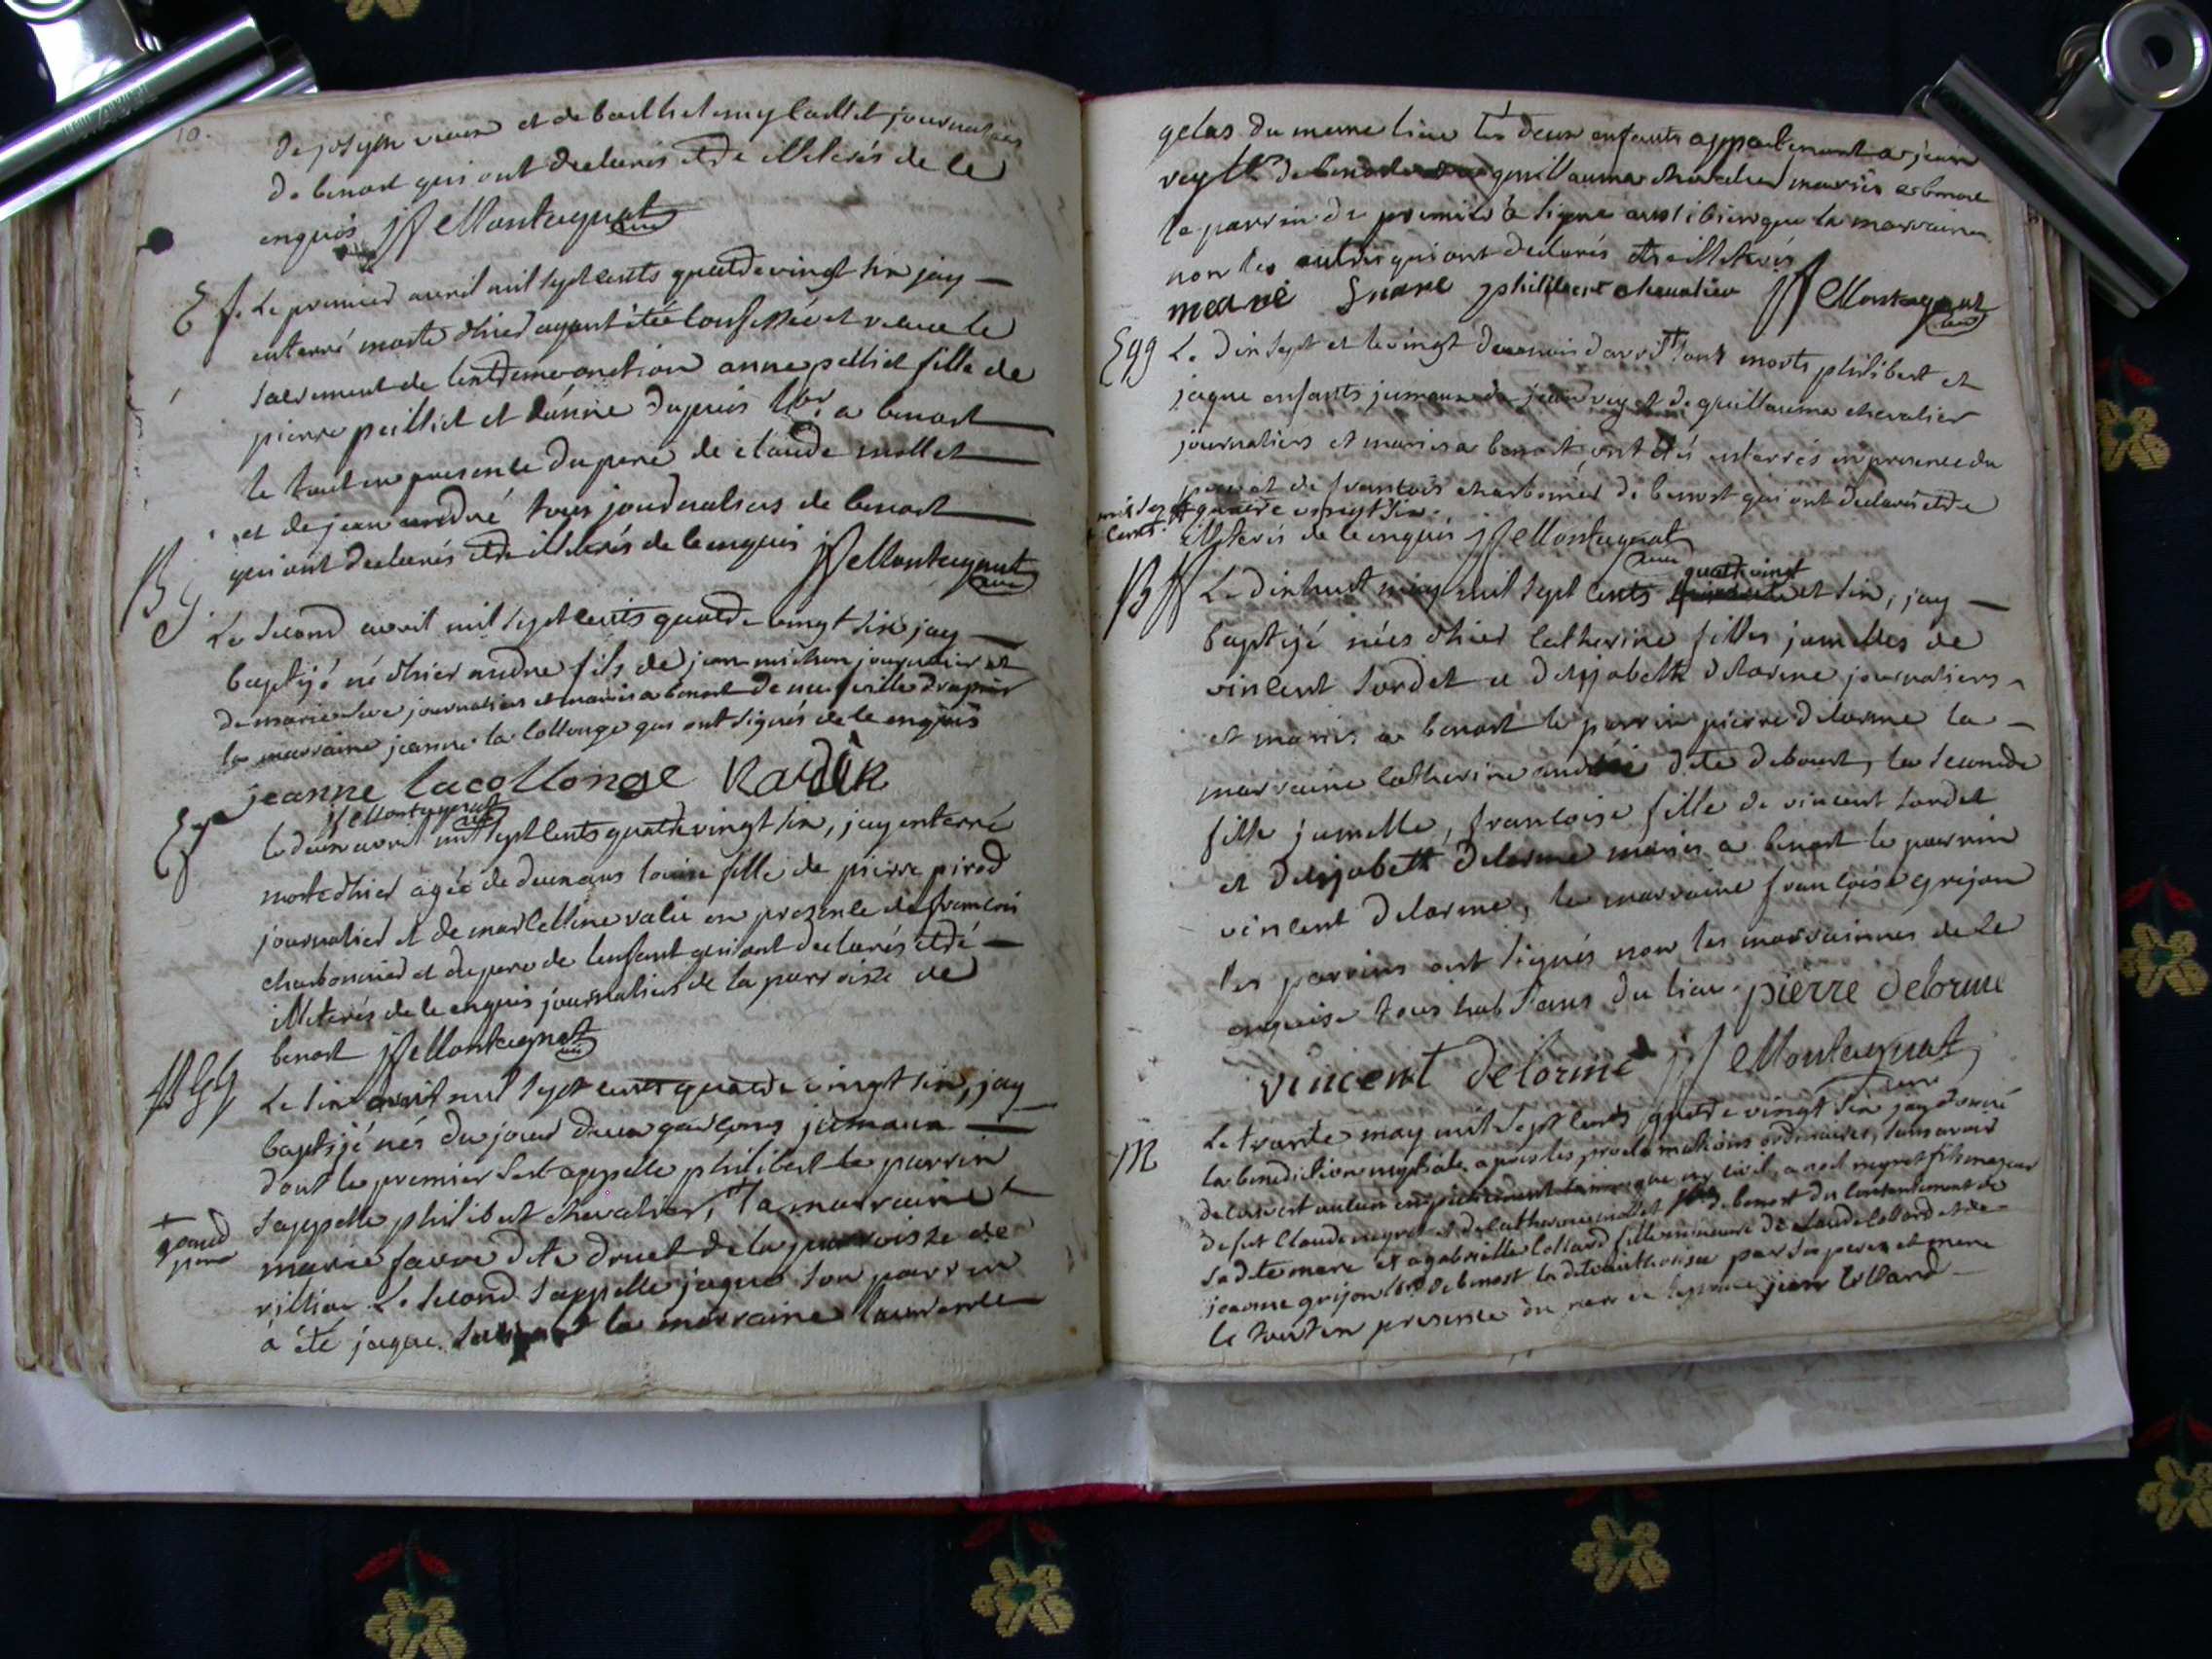 10.
de joseph et de barthelemy journaliers
de benost qui ont declarés etre illiterés de ce
enquis jf Montagnat
Ef. Le premier avril mil sept cents quatre vingt six jay
enterré morte d'hier ayant étée confessée et recue le
sacrement de lextreme onction anne pelliet fille de
pierre peilliet et depuis a benost
le tout en presence du pere de claude mollet
et de jean andré tous journaliers de benost
qui ont declarés etre illiterés de ce enquis jf Montagnat
B g. Le second avril mil sept cents quatre vingt six jay
baptisé né d'hier andre fils de jean michon journalier et
de marie journaliers et mariés a benost
la marraine jeanne la collonge qui ont signés de ce enquis
jeanne lacollonge
jf Montagnat
Ef le deux avril mil sept cents quatre vingt six, jay enterré
morte d'hier agée de deux ans fille de pierre pirod
journalier et de marcelline valie en presence de francois
charbonnier et du pere de lenfant qui ont declarés etre
illiterés de ce enquis journaliers de la parroisse de
benost jf Montagnat
B gg Le six avril mil sept cents quatre vingt six, jay
baptisé nés du jour deux garçons jumaux
dont le premier sest appellé philibert le parrin
sappelle philibert chevalier, + la marraine
+ grand pere
marie favre dite druet de la parroisse de
villieu Le second sappelle jaque son parrin
à été jaque la marraine laurence
gelas du meme lieu les deux enfants appartenant a jean
rey de benost et a guillauma chevalier mariés a benost
le parrin du premier à signé aussi bien que la marraine
non les autres qui ont declarés etre illiterés
philibert chevalier jf Montagnat
Egg Le dix sept et le vingt deux avril + sont morts philibert et
jaque enfants jumaux de jean rey et de guillauma chevalier
journaliers et mariés a benost, ont étés enterrés en presence du
pere et de francois charbonnier de benost qui ont declarés etre
mil sept cents + quatre vingt six.
illiterés de ce enquis jf Montagnat
B ff Le dix huit may mil sept cents quatre vingt et six, jay
baptisé nées d'hier catherine filles jumelles de
vincent tordet et delisabeth delorme journaliers
et mariés a benost le parrin pierre delorme la
marraine catherine andrée dite debourt, la seconde
fille jumelle, francoise fille de vincent tordet
et delisabeth delorme mariés a benost le parrin
vincent delorme, la marraine francoise grejon
les parrins ont signés non les marrainnes de ce
enquise tous habitans du lieu. pierre delorme
vincent delorme jf Montagnat
M Le trente may mil sept cents quatre vingt six jay donné
la benediction nuptiale apres les proclamations ordinaires, sans avoir
decouvert aucun empechement canonique ny civil, a noel neyret fils majeur
de fut Claude neyret et de catherine mollet de benost du consentement de
sadite mere et a gabrielle collard fille mineure de claude collard et de
jeanne grijon de benost la dite authorisée par ses peres et mere
le tout en presence du pere de lepouse jean collard